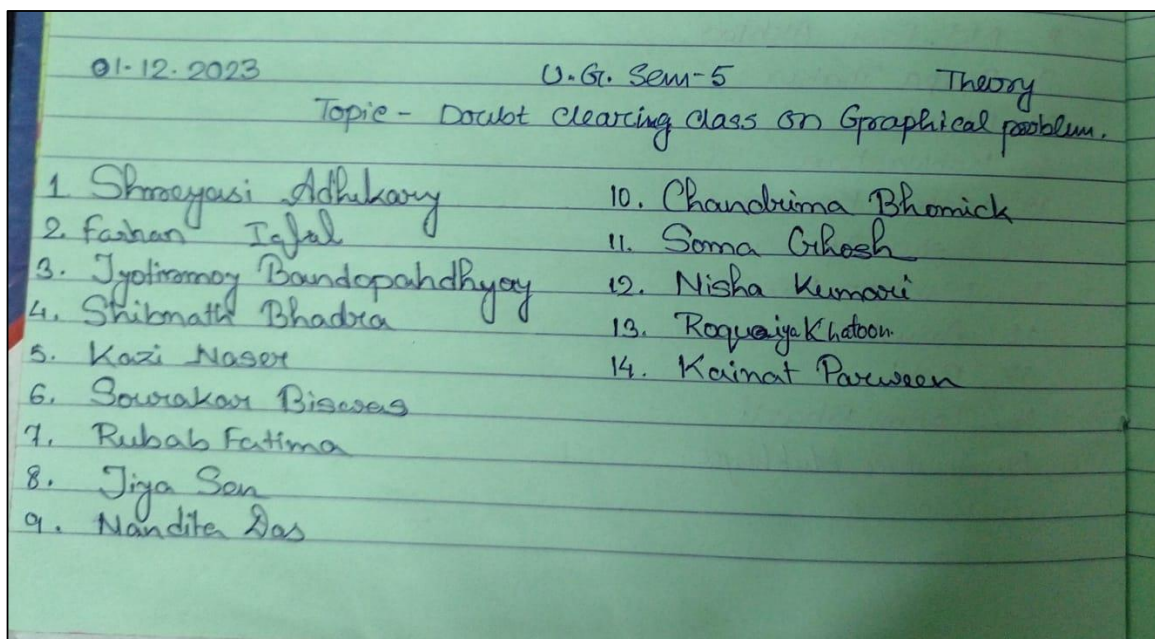 01-12-2023 U.G. Sem-5 Theory
Topic - Doubt clearing class on Graphical problem.
1. Shreeyasi Adhikary
2. Farhan Iqbal
3. Jyotirmoy Bandopahdhyay
4. Shibnath Bhadra
5. Kazi Naser
6. Sourakar Biswas
7. Rubab Fatima
8. Jiya Sen
9. Nandita Das
10. Chandrima Bhomick
11. Soma Ghosh
12. Nisha Kumari
13. Roquaiya Khatoon.
14. Kainat Parween